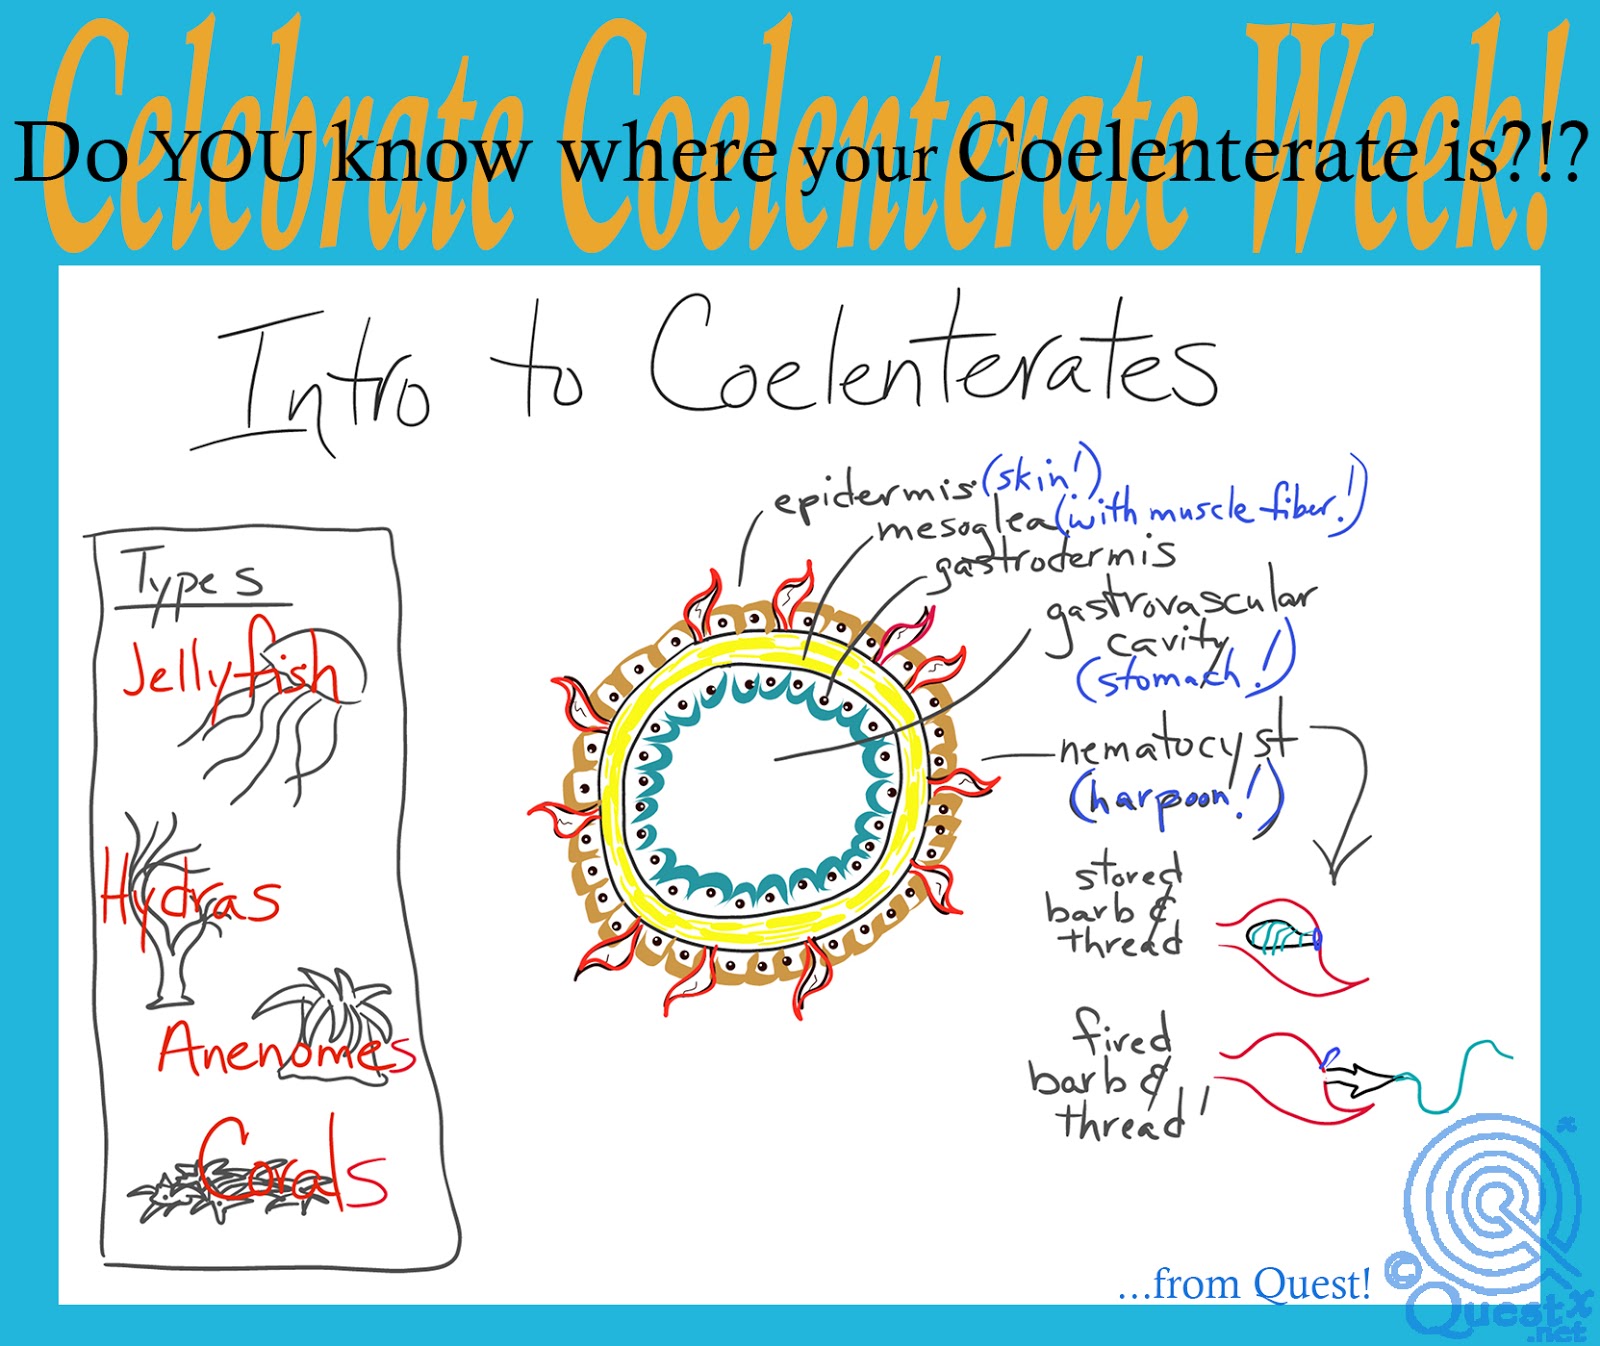 Celebrate Coelenterate Week!
Do YOU know where your Coelenterate is?!?
Intro to Coelenterates
epidermis (skin!)
mesoglea (with muscle fiber!)
gastrodermis
gastrovascular
cavity
(stomach!)
nematocyst
(harpoon!)
stored
barb &
thread
fired
barb &
thread
Types
Jellyfish
Hydras
Anenomes
Corals
...from Quest!
© Questx
.net
x